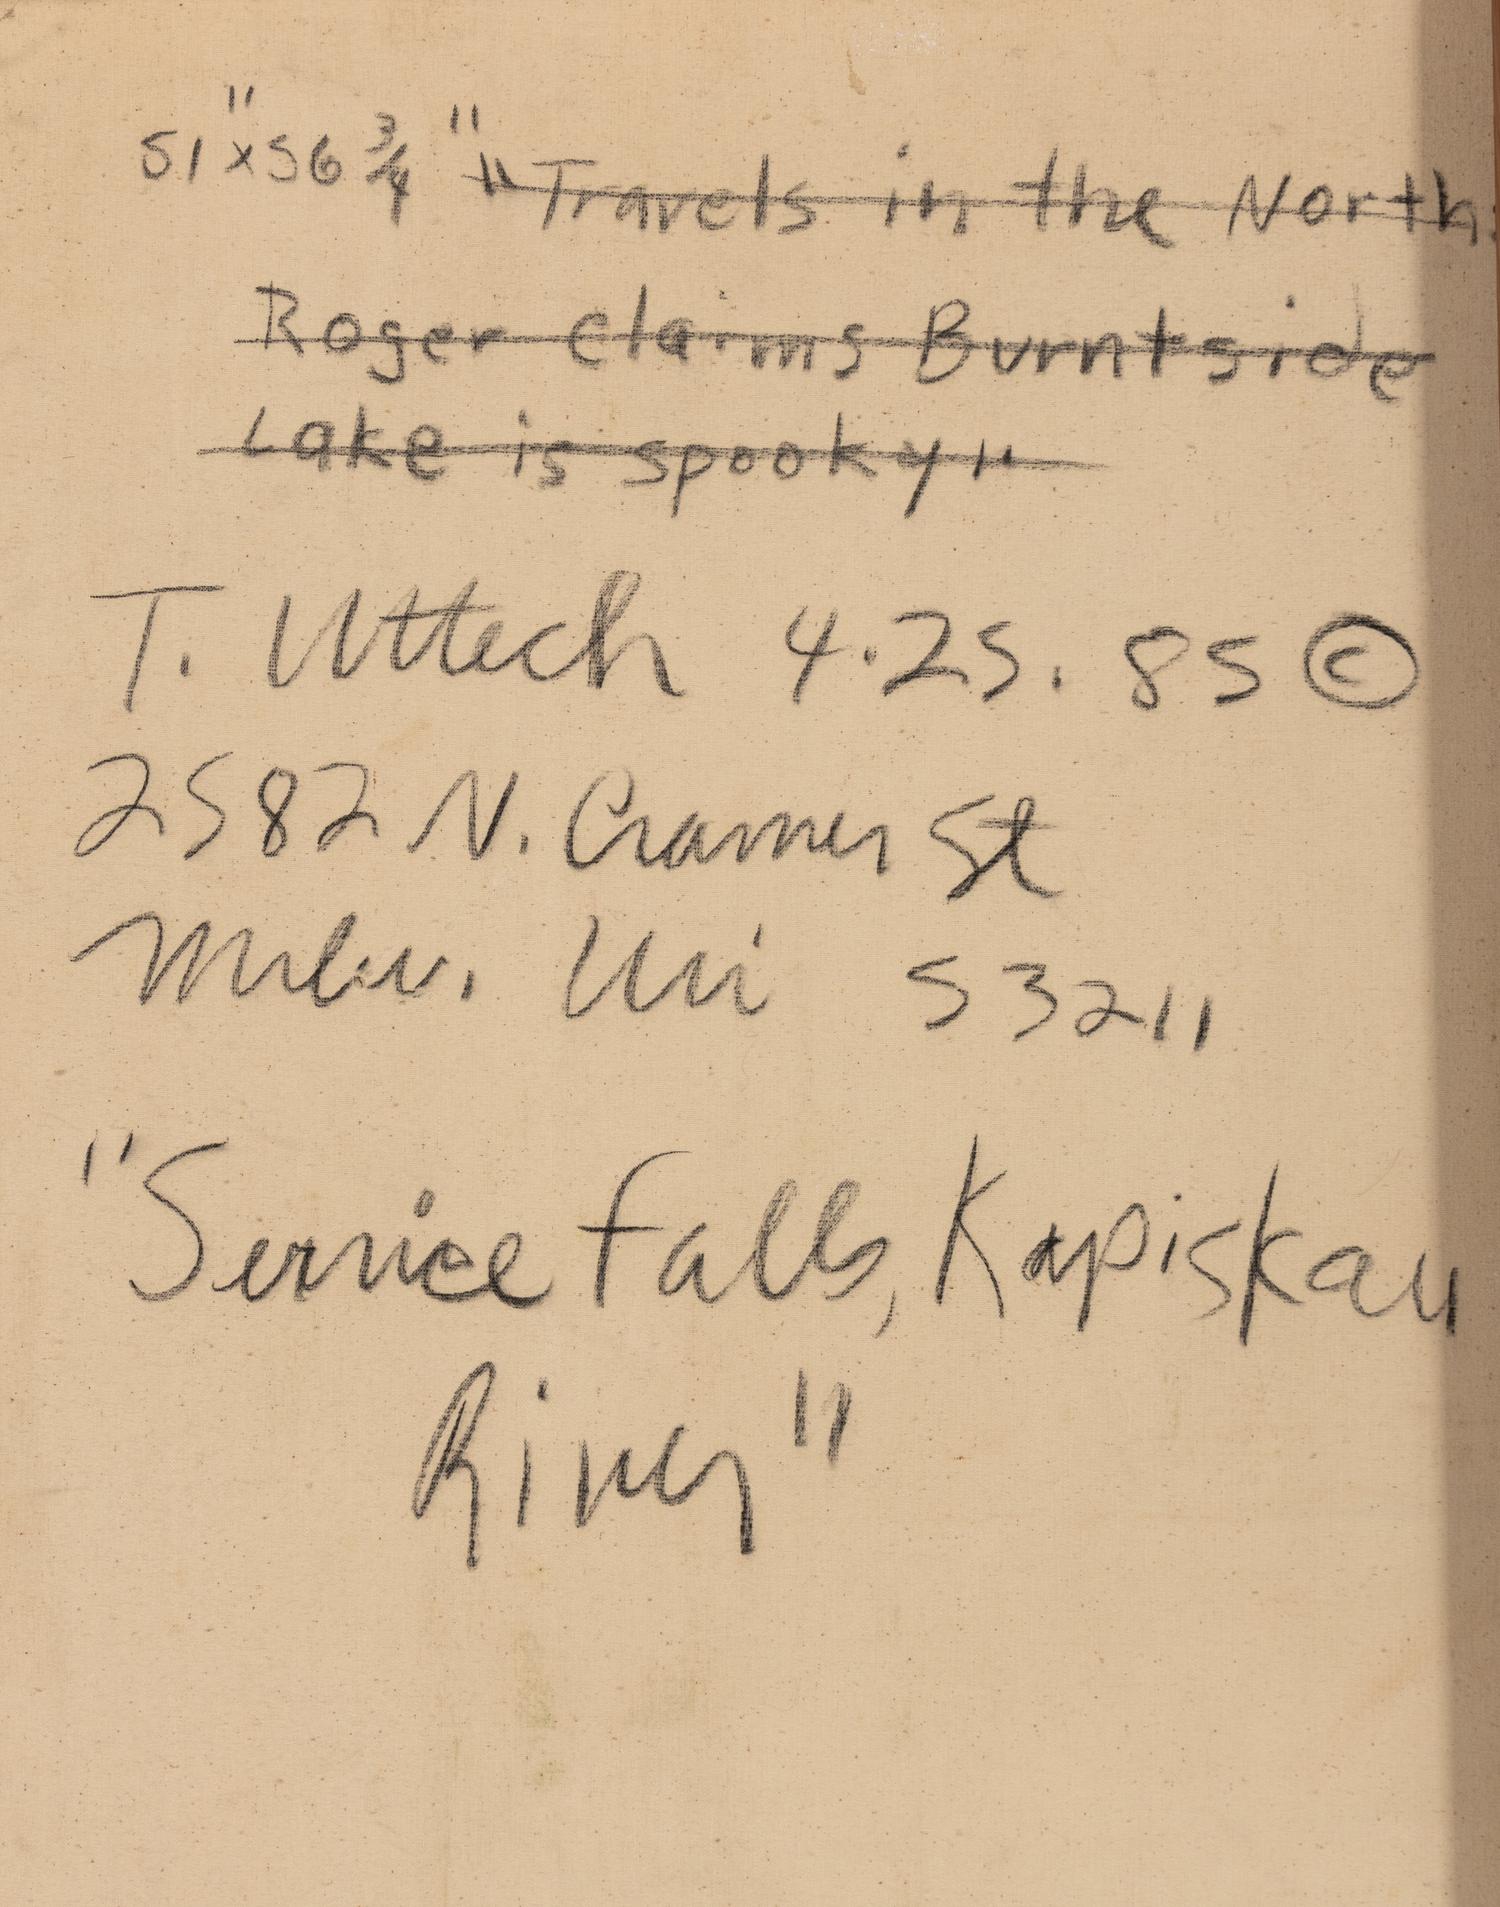 51" x 56 3/4" "Travels in the North:
Roger claims Burntside
Lake is spooky"
T. Uttech 4.25.85 ©
2582 N. Cramer St
Milw. Wi 53211
"Service Falls, Kapiskau
River"